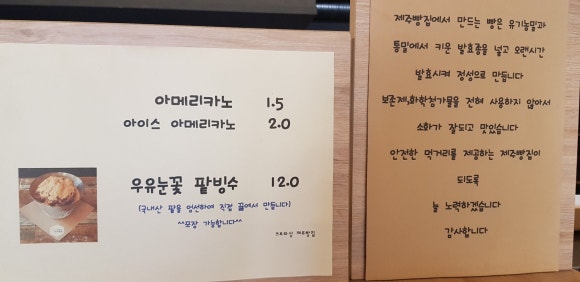 아메리카노 1.5
아이스 아메리카노 2.0
우유눈꽃 팥빙수 12.0
(국내산 팥을 엄선하여 직접 끓여서 만듭니다)
^^포장 가능합니다^^
제주빵집
제주빵집에서 만드는 빵은 유기농밀과
통밀에서 키운 발효종을 넣고 오랜시간
발효시켜 정성으로 만듭니다
보존제,화학첨가물을 전혀 사용하지 않아서
소화가 잘되고 맛있습니다
안전한 먹거리를 제공하는 제주빵집이
되도록
늘 노력하겠습니다
감사합니다